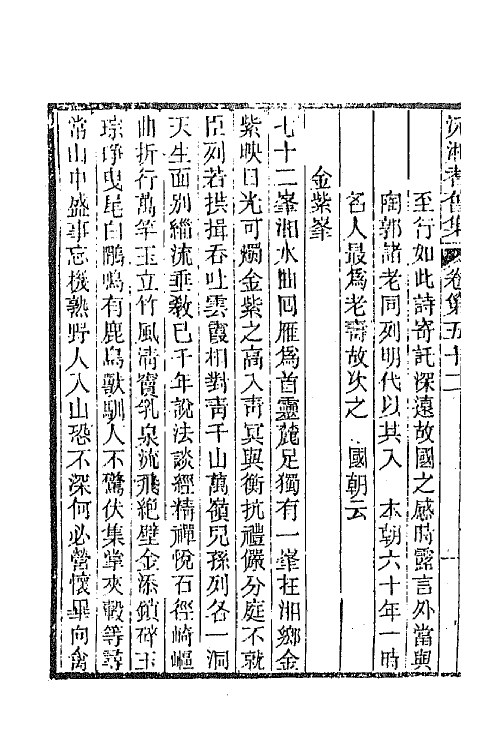 沅湘耆舊集 卷第五十二
至行如此詩寄託深遠故國之感時露言外當與
陶郭諸老同列明代以其入 本朝六十年一時
名人最爲老壽故次之 國朝云
金紫峯
七十二峯湘水曲回雁爲首靈麓足獨有一峯在湘鄉金
紫映日光可燭金紫之高入靑冥與衡抗禮儼分庭不就
臣列若拱揖吞吐雲霞相對靑千山萬嶺兒孫列各一洞
天生面別緇流垂敎已千年說法談經精禪悅石徑崎嶇
曲折行萬竿玉立竹風淸寶乳泉流飛絶壁金添鎖碎玉
琮琤曳尾白鷴鳴有鹿鳥獸馴人不驚伏集掌夾轂等尋
常山中盛事忘機熟野人入山恐不深何必營懷畢向禽